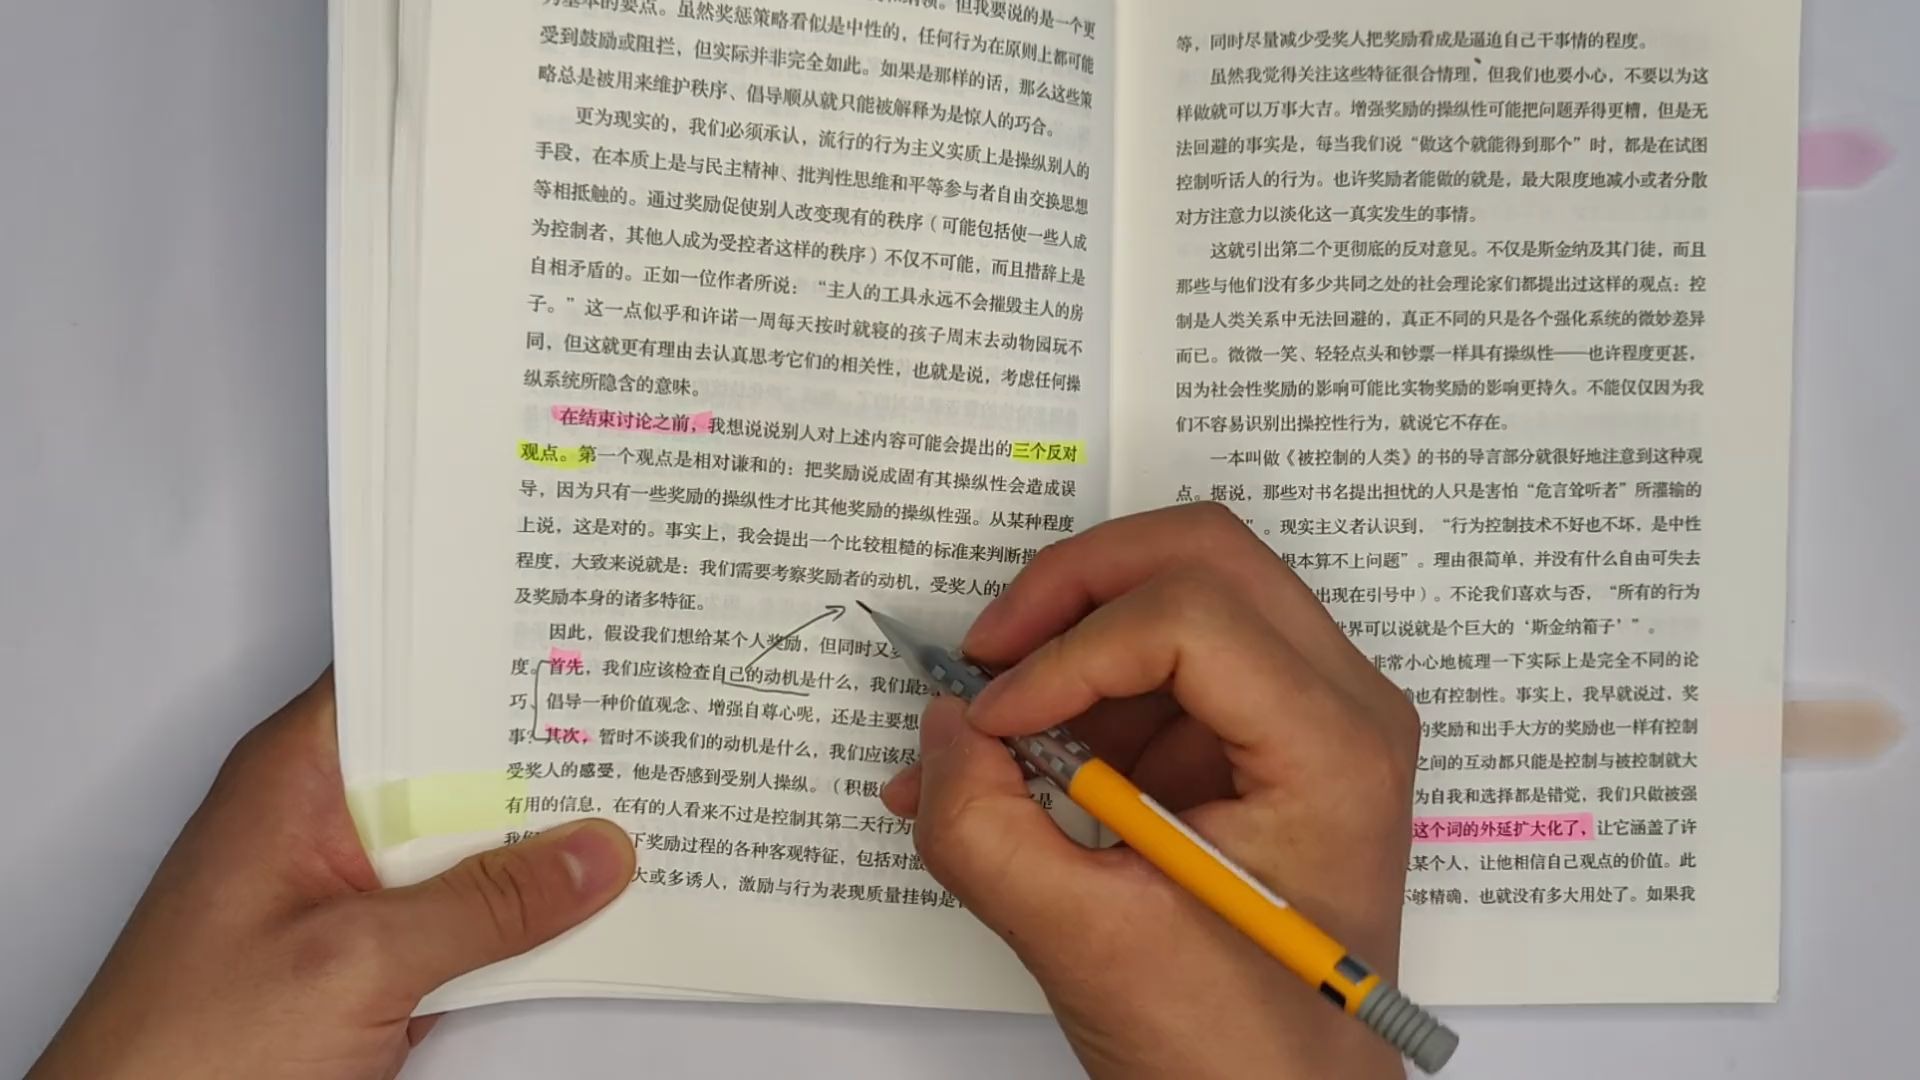 为基本的要点。虽然奖惩策略看似是中性的，任何行为在原则上都可能
受到鼓励或阻拦，但实际并非完全如此。如果是那样的话，那么这些策
略总是被用来维护秩序、倡导顺从就只能被解释为是惊人的巧合。
更为现实的，我们必须承认，流行的行为主义实质上是操纵别人的
手段，在本质上是与民主精神、批判性思维和平等参与者自由交换思想
等相抵触的。通过奖励促使别人改变现有的秩序（可能包括使一些人成
为控制者，其他人成为受控者这样的秩序）不仅不可能，而且措辞上是
自相矛盾的。正如一位作者所说：“主人的工具永远不会摧毁主人的房
子。”这一点似乎和许诺一周每天按时就寝的孩子周末去动物园玩不
同，但这就更有理由去认真思考它们的相关性，也就是说，考虑任何操
纵系统所隐含的意味。
在结束讨论之前，我想说说别人对上述内容可能会提出的三个反对
观点。第一个观点是相对谦和的：把奖励说成固有其操纵性会造成误
导，因为只有一些奖励的操纵性才比其他奖励的操纵性强。从某种程度
上说，这是对的。事实上，我会提出一个比较粗糙的标准来判断操
程度，大致来说就是：我们需要考察奖励者的动机，受奖人的
及奖励本身的诸多特征。
因此，假设我们想给某个人奖励，但同时又
度。首先，我们应该检查自己的动机是什么，我们最
巧、倡导一种价值观念、增强自尊心呢，还是主要想
事？其次，暂时不谈我们的动机是什么，我们应该尽
受奖人的感受，他是否感到受别人操纵。（积极
有用的信息，在有的人看来不过是控制其第二天行为
下奖励过程的各种客观特征，包括对激
大或多诱人，激励与行为表现质量挂钩是
等，同时尽量减少受奖人把奖励看成是逼迫自己干事情的程度。
虽然我觉得关注这些特征很合情理，但我们也要小心，不要以为这
样做就可以万事大吉。增强奖励的操纵性可能把问题弄得更糟，但是无
法回避的事实是，每当我们说“做这个就能得到那个”时，都是在试图
控制听话人的行为。也许奖励者能做的就是，最大限度地减小或者分散
对方注意力以淡化这一真实发生的事情。
这就引出第二个更彻底的反对意见。不仅是斯金纳及其门徒，而且
那些与他们没有多少共同之处的社会理论家们都提出过这样的观点：控
制是人类关系中无法回避的，真正不同的只是各个强化系统的微妙差异
而已。微微一笑、轻轻点头和钞票一样具有操纵性——也许程度更甚，
因为社会性奖励的影响可能比实物奖励的影响更持久。不能仅仅因为我
们不容易识别出操控性行为，就说它不存在。
一本叫做《被控制的人类》的书的导言部分就很好地注意到这种观
点。据说，那些对书名提出担忧的人只是害怕“危言耸听者”所灌输的
”。现实主义者认识到，“行为控制技术不好也不坏，是中性
根本算不上问题”。理由很简单，并没有什么自由可失去
出现在引号中）。不论我们喜欢与否，“所有的行为
世界可以说就是个巨大的‘斯金纳箱子’”。
非常小心地梳理一下实际上是完全不同的论
也有控制性。事实上，我早就说过，奖
的奖励和出手大方的奖励也一样有控制
之间的互动都只能是控制与被控制就大
为自我和选择都是错觉，我们只做被强
这个词的外延扩大化了，让它涵盖了许
某个人，让他相信自己观点的价值。此
不够精确，也就没有多大用处了。如果我